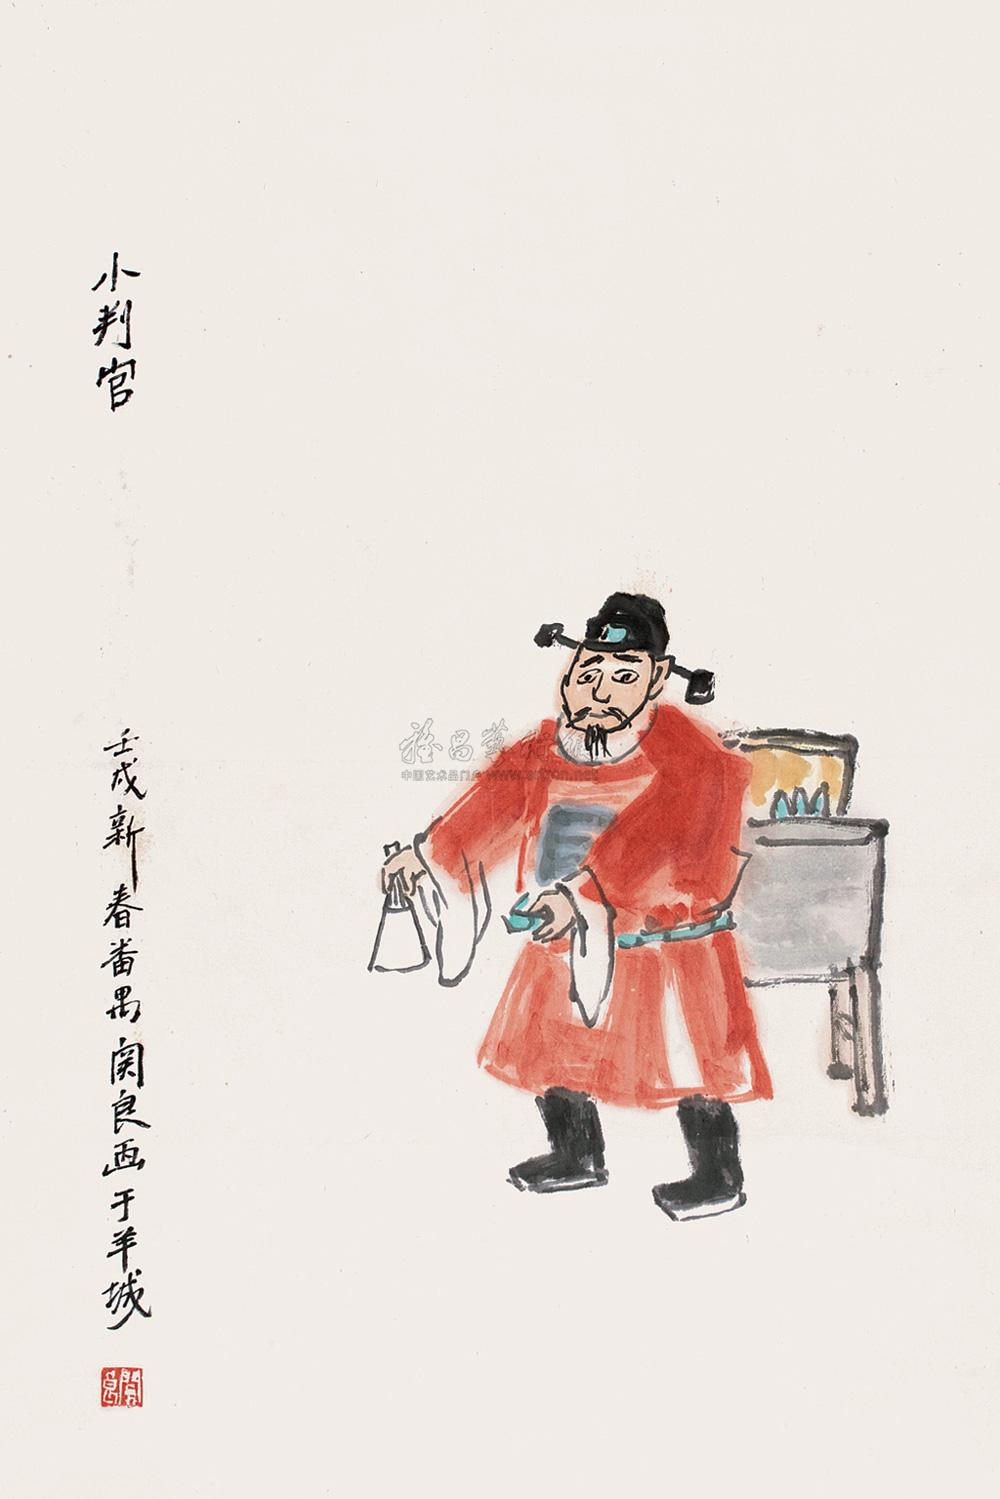 小判官
壬戌新春番禺关良画于羊城
雅昌艺术网
中国艺术品门户 www.artron.net
关良